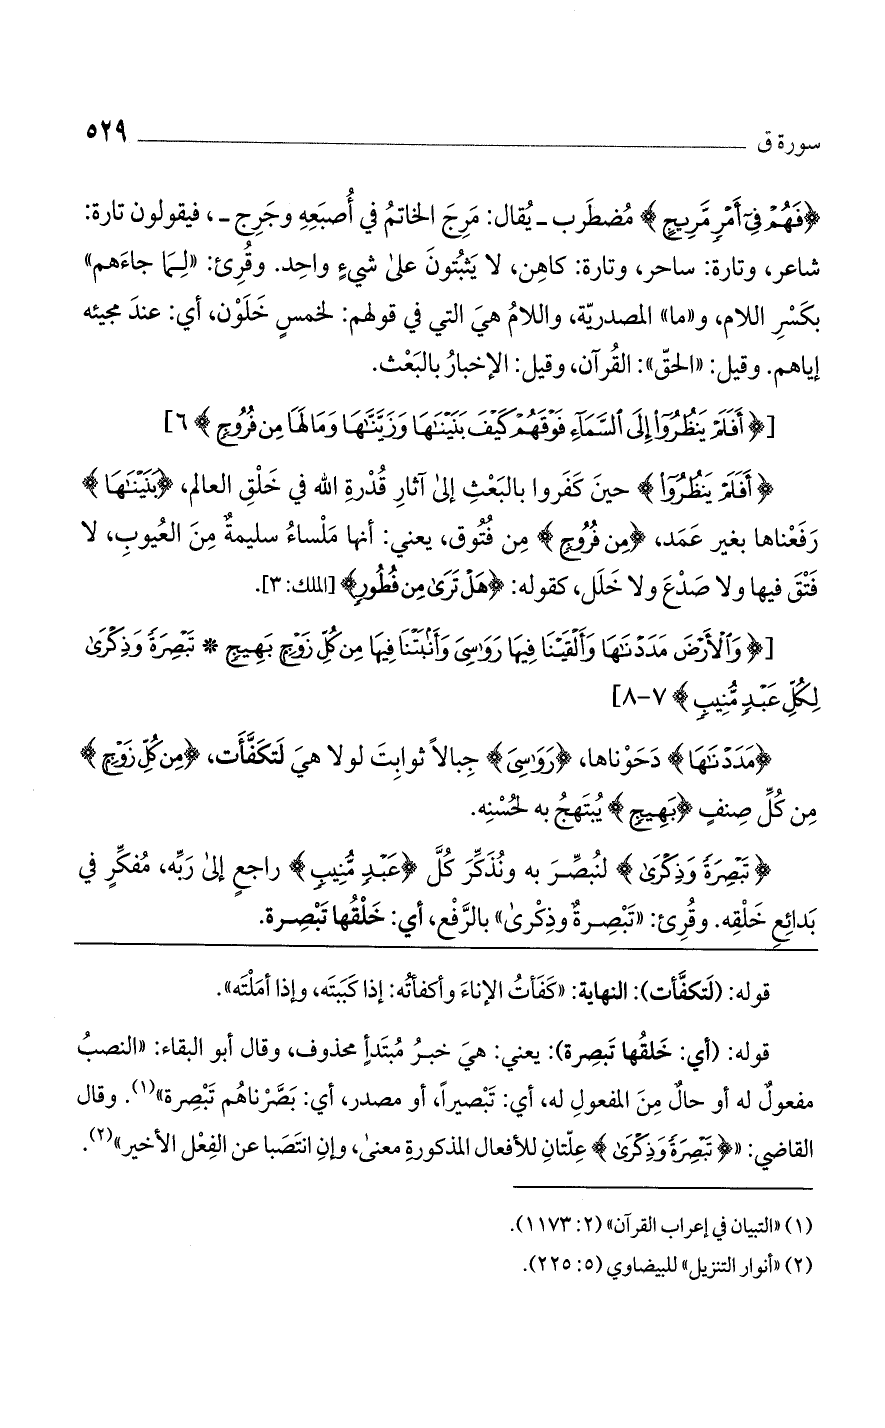 سورة ق ٥٢٩
﴿فَهُمْ فِىٓ أَمْرٍ مَّرِيجٍ﴾ مُضطَرب ـ يُقال: مَرِجَ الخاتمُ في أُصبَعِهِ وجَرِج ـ، فيقولون تارة:
شاعر، وتارة: ساحر، وتارة: كاهِن، لا يَثبُتونَ علىٰ شيءٍ واحِد. وقُرِئ: «لِـمَا جاءَهم»
بكَسْرِ اللام، و«ما» المصدريّة، واللامُ هيَ التي في قولهم: لخمسٍ خَلَوْن، أي: عندَ مجيئه
إياهم. وقيل: «الحقّ»: القُرآن، وقيل: الإخبارُ بالبَعْث.
[﴿أَفَلَمْ يَنظُرُوٓا۟ إِلَى ٱلسَّمَآءِ فَوْقَهُمْ كَيْفَ بَنَيْنَٰهَا وَزَيَّنَّٰهَا وَمَا لَهَا مِن فُرُوجٍ﴾ ٦]
﴿أَفَلَمْ يَنظُرُوٓا۟﴾ حينَ كَفَروا بالبَعْثِ إلىٰ آثارِ قُدْرةِ الله في خَلْقِ العالم، ﴿بَنَيْنَٰهَا﴾
رَفَعْناها بغير عَمَد، ﴿مِن فُرُوجٍ﴾ مِن فُتُوق، يعني: أنها مَلْساءُ سليمةٌ مِنَ العُيوبِ، لا
فَتْقَ فيها ولا صَدْعَ ولا خَلَل، كقوله: ﴿هَلْ تَرَىٰ مِن فُطُورٍ﴾ [الملك: ٣].
[﴿وَٱلْأَرْضَ مَدَدْنَٰهَا وَأَلْقَيْنَا فِيهَا رَوَٰسِىَ وَأَنۢبَتْنَا فِيهَا مِن كُلِّ زَوْجٍۭ بَهِيجٍ * تَبْصِرَةً وَذِكْرَىٰ
لِكُلِّ عَبْدٍ مُّنِيبٍ﴾ ٧-٨]
﴿مَدَدْنَٰهَا﴾ دَحَوْناها، ﴿رَوَٰسِىَ﴾ جِبالاً ثوابِتَ لولا هيَ لَتَكفَّأَت، ﴿مِن كُلِّ زَوْجٍ﴾
مِن كُلِّ صِنفٍ ﴿بَهِيجٍ﴾ يُبتَهجُ به لحُسْنِه.
﴿تَبْصِرَةً وَذِكْرَىٰ﴾ لنُبصِّـرَ به ونُذَكِّرَ كُلَّ ﴿عَبْدٍ مُّنِيبٍ﴾ راجعٍ إلىٰ رَبِّه، مُفكِّرٍ في
بَدائِعِ خَلْقِه. وقُرِئ: «تَبْصِـرةٌ وذِكْرىٰ» بالرَّفْع، أي: خَلْقُها تَبْصِـرة.
قوله: (لَتكفَّأت): النهاية: «كَفَأتُ الإناءَ وأكفأتُه: إذا كَبَبتَه، وإذا أمَلْتَه».
قوله: (أي: خَلقُها تَبصِرة): يعني: هيَ خبـرُ مُبتَدأٍ محذوف، وقال أبو البقاء: «النصبُ
مفعولٌ له أو حالٌ مِنَ المفعولِ له، أي: تَبْصيراً، أو مصدر، أي: بَصَّرْناهُم تَبْصِرة»(١). وقال
القاضي: «﴿تَبْصِرَةً وَذِكْرَىٰ﴾ عِلّتانِ للأفعال المذكورةِ معنىٰ، وإنِ انتَصَبا عن الفِعْل الأخير»(٢).
(١) «التبيان في إعراب القرآن» (٢: ١١٧٣).
(٢) «أنوار التنزيل» للبيضاوي (٥: ٢٢٥).